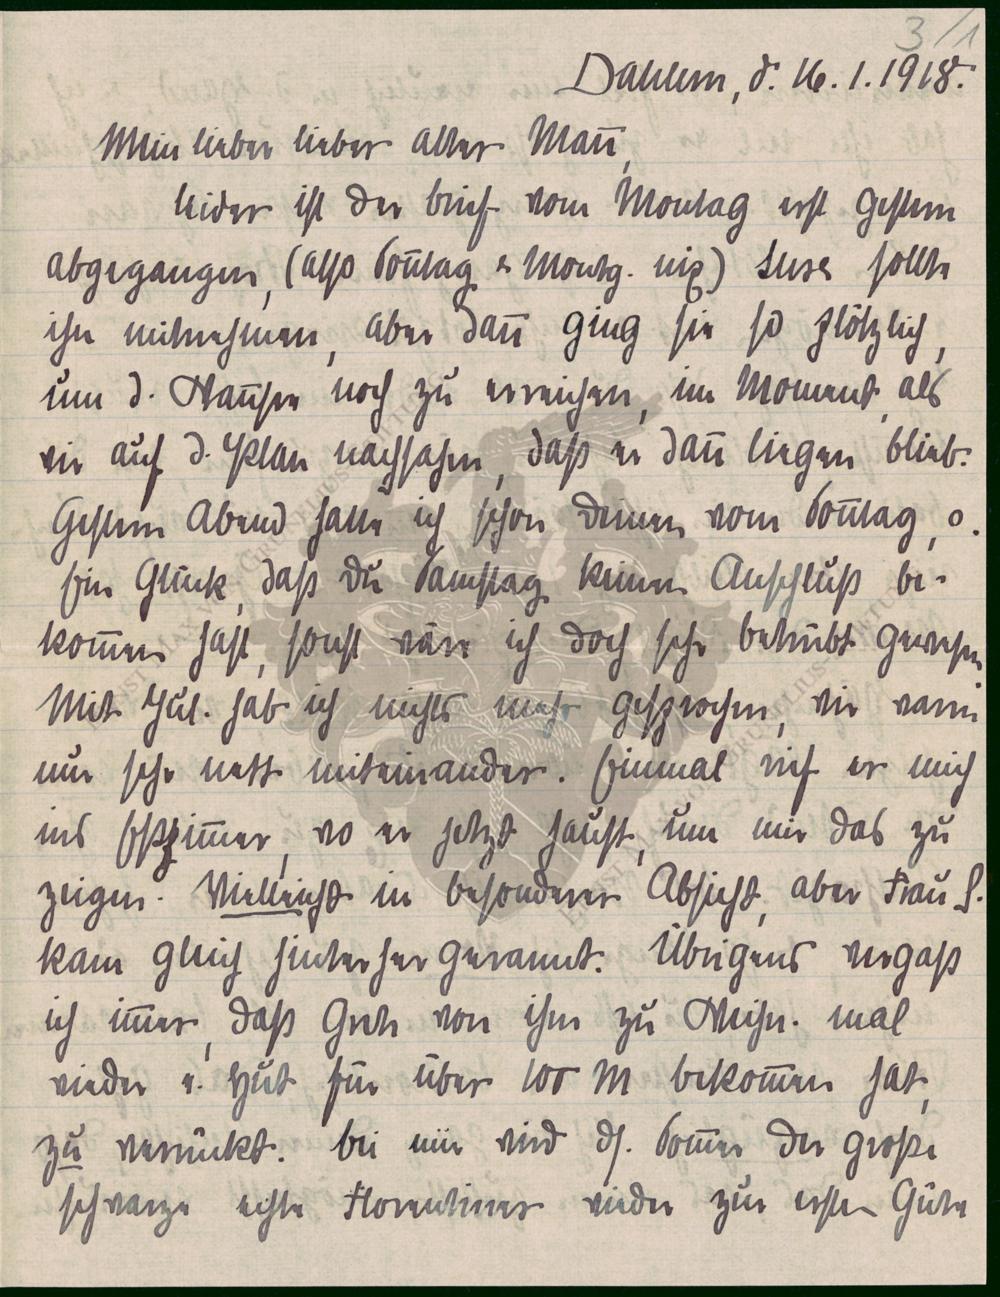 3/1
Dahlem, d. 16. 1. 1918.
Mein lieber lieber alter Mañ,
leider ist der brief vom Montag erst gestern
abgegangen, (also Soñtag & Montg. nix) Suse sollte
ihn mitnehmen, aber dañ ging sie so plötzlich,
um d. noch zu erreichen, im Moment, als
wir auf d. Plan nachsahen, daß er dañ liegen blieb.
Gestern Abend hatte ich schon deinen vom Soñtag, o.
Ein Glück, daß du Samstag keinen Anschluß be-
kom̄en hast, sonst wäre ich doch sehr betrübt gewesen
Mit Jul. hab ich nichts mehr gesprochen, wir waren
nur sehr nett miteinander. Einmal rief er mich
ins Eßzim̄er, wo er jetzt haust, um mir das zu
zeigen. Vielleicht in besonderer Absicht, aber Frau f.
kam gleich hinterher gerannt. Übrigens vergaß
ich im̄er, daß Grete von ihm zu Weihn. mal
wieder e. Hut für über 100 M bekom̄en hat,
zu verrückt. bei mir wird ds. Som̄er der große
schwarze echte Florentiner wieder zur ersten Güte